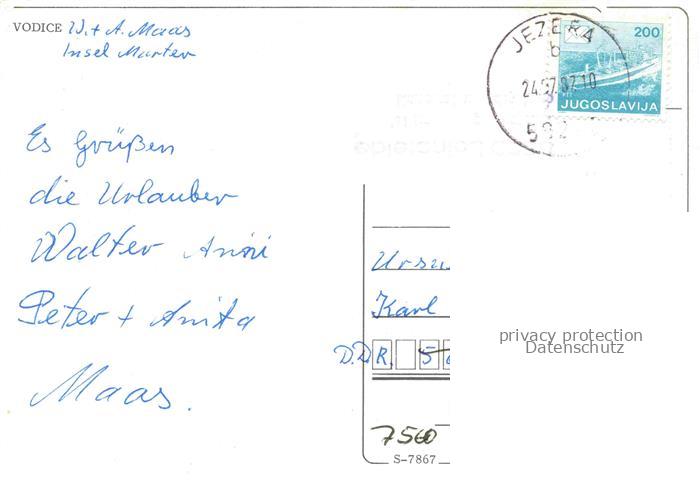 VODICE W. + A. Maas
Insel Murter
JEZERA
b
24.07.87.10
592
200
JUGOSLAVIJA
Es Grüßen
die Urlauber
Walter Anni
Peter + Anita
Maas.
Karl
D.D.R. 5
7560
S-7867
privacy protection
Datenschutz